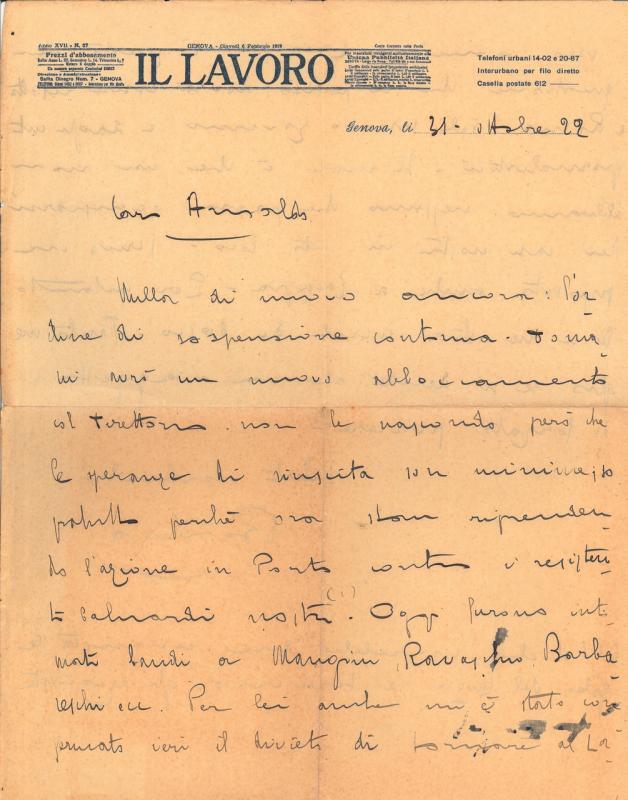 Anno XVII - N. 37
GENOVA - Giovedì 6 Febbraio 1919
Conto Corrente colla Posta
Prezzi d'abbonamento
Direzione e Amministrazione:
Salita Dinegro Num. 7 - GENOVA
IL LAVORO
Unione Pubblicità Italiana
Telefoni urbani 14-02 e 20-87
Interurbano per filo diretto
Casella postale 612
Genova, li 31 - ottobre 22
Caro Arnaldo
Nulla di nuovo ancora. L'or-
dine di sospensione continua. Doma-
ni avrò un nuovo abboccamento
col Direttorio. non le nascondo però che
le speranze di riuscita son minime,
perchè ora stan riprenden-
do l'azione in Porto contro i resisten-
ti nostri (1). Oggi furono inti-
mati bandi a Mangini, Ravaschio, Barba-
reschi ecc. Per lei anche mi è stato con-
fermato ieri il divieto di tornare al La-